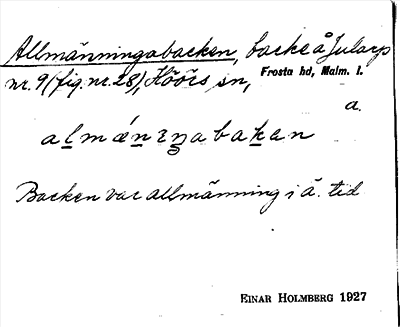 Allmänningabacken, backe å Jularp
nr. 9 (fig. nr. 28), Höörs sn, Frosta hd, Malm. l.
a.
almǽnɪŋabakan
Backen var allmänning i ä. tid
EINAR HOLMBERG 1927